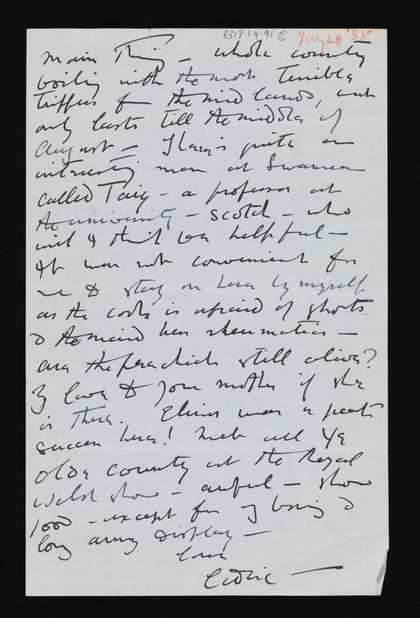 8317.1.4.91 July 28 35
main thing – whole county
boiling with the most terrible
trippers from the midlands, and
only lasts till the middle of
August – There's quite an
interesting man at Swansea
called Taig – a professor at
the university – scotch – who
will I think be helpful –
It was not convenient for
me to stay on here by myself
as the cook is afraid of ghosts
& the maid has rheumatics –
are the parachicks still alive?
My love to your mother if she
is there. was a great
success here! Met all Ye
Olde county at the Royal
Welsh show – awful – show
too – except for my boring &
long army display –
Love
Cedric –